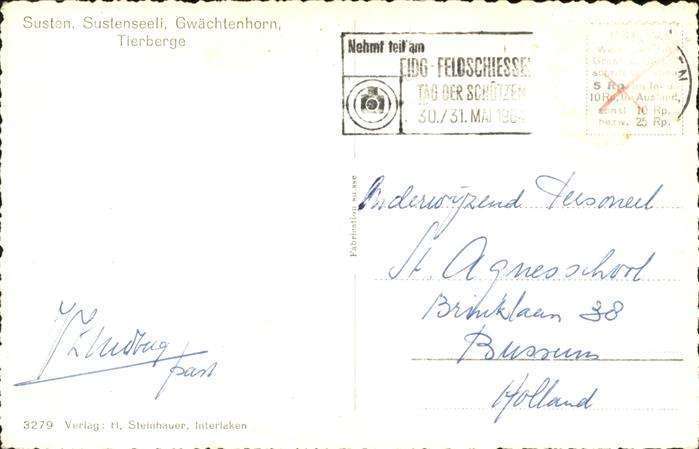 Susten, Sustenseeli, Gwächtenhorn,
Tierberge
Nehmt teil am
EIDG. FELDSCHIESSE
TAG DER SCHÜTZEN
30./31. MAI 196
5 Rp.
10 Rp.
10 Rp.
bezw. 25 Rp.
Fabrication suisse
Onderwijzend Personeel
St. Agnesschool
Brinklaan 38
Bussum
Holland
past
3279 Verlag: H. Steinhauer, Interlaken